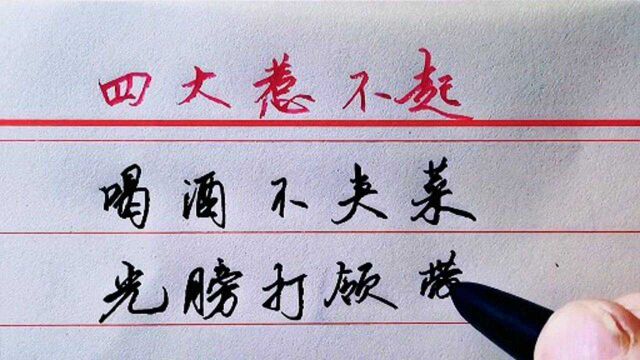 四大惹不起
喝酒不夹菜
光膀打领带